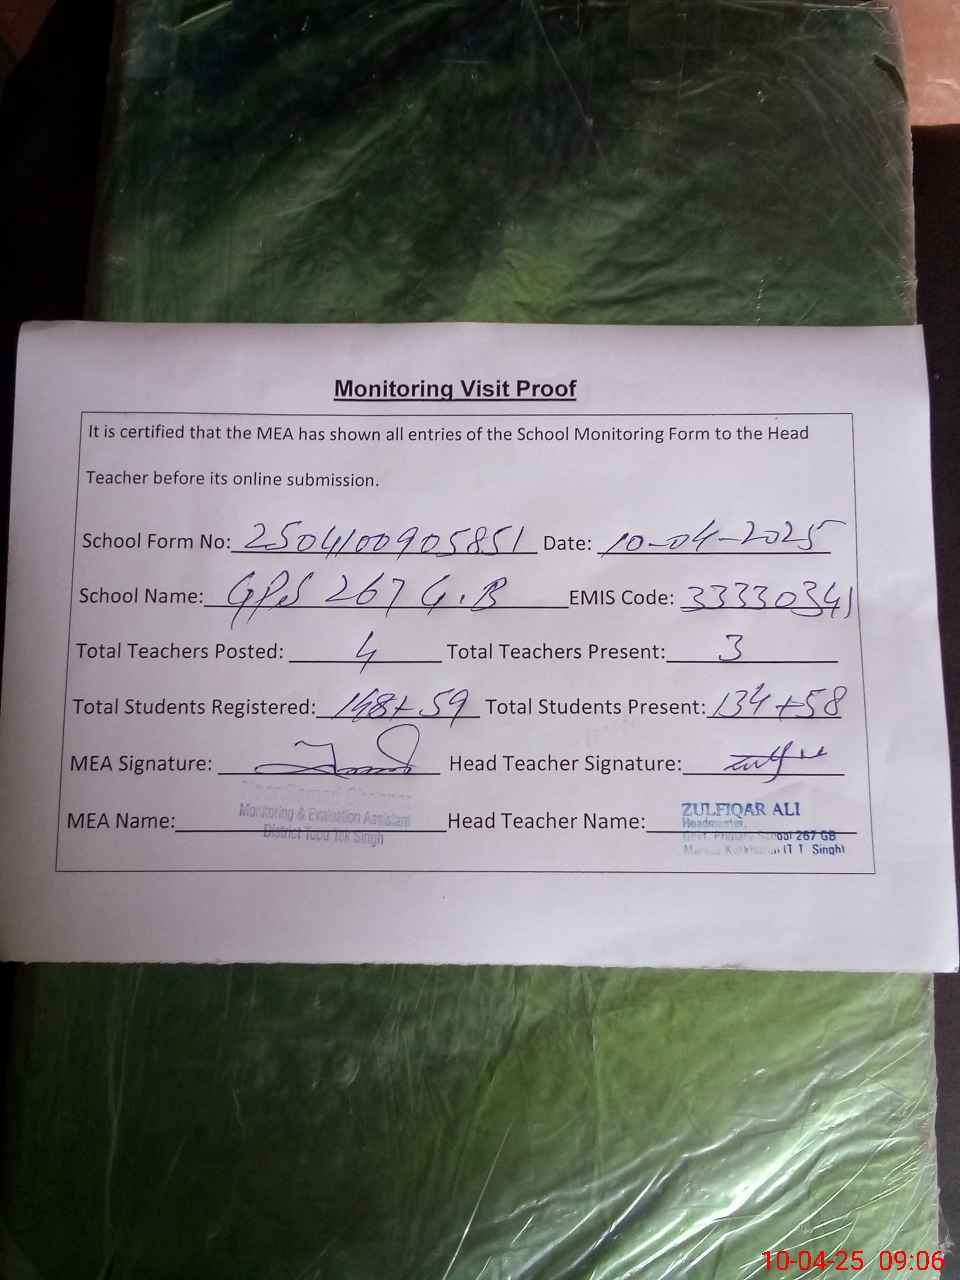 Monitoring Visit Proof
It is certified that the MEA has shown all entries of the School Monitoring Form to the Head
Teacher before its online submission.
School Form No: 2504100905851 Date: 10-04-2025
School Name: GPS 267 G.B EMIS Code: 33330341
Total Teachers Posted: 4 Total Teachers Present: 3
Total Students Registered: 148+59 Total Students Present: 134+58
MEA Signature: Head Teacher Signature:
Monitoring & Evaluation Assistant
MEA Name: District Toba Tek Singh Head Teacher Name: ZULFIQAR ALI
Headmaster,
Govt. Primary School 267 GB
(T T Singh)
10-04-25 09:06